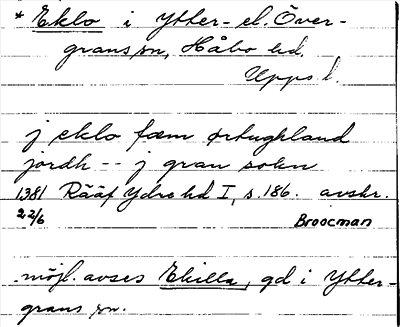 * Eklo i Ytter- el. Över-
grans sn, Håbo hd.
Upps. l.
j eklo fæm ørtughland
jordh -- j gran sokn
1381 Rääf Ydre hd I, s. 186. avskr.
22/6 Broocman
möjl. avses Ekilla, gd i Ytter-
grans sn.